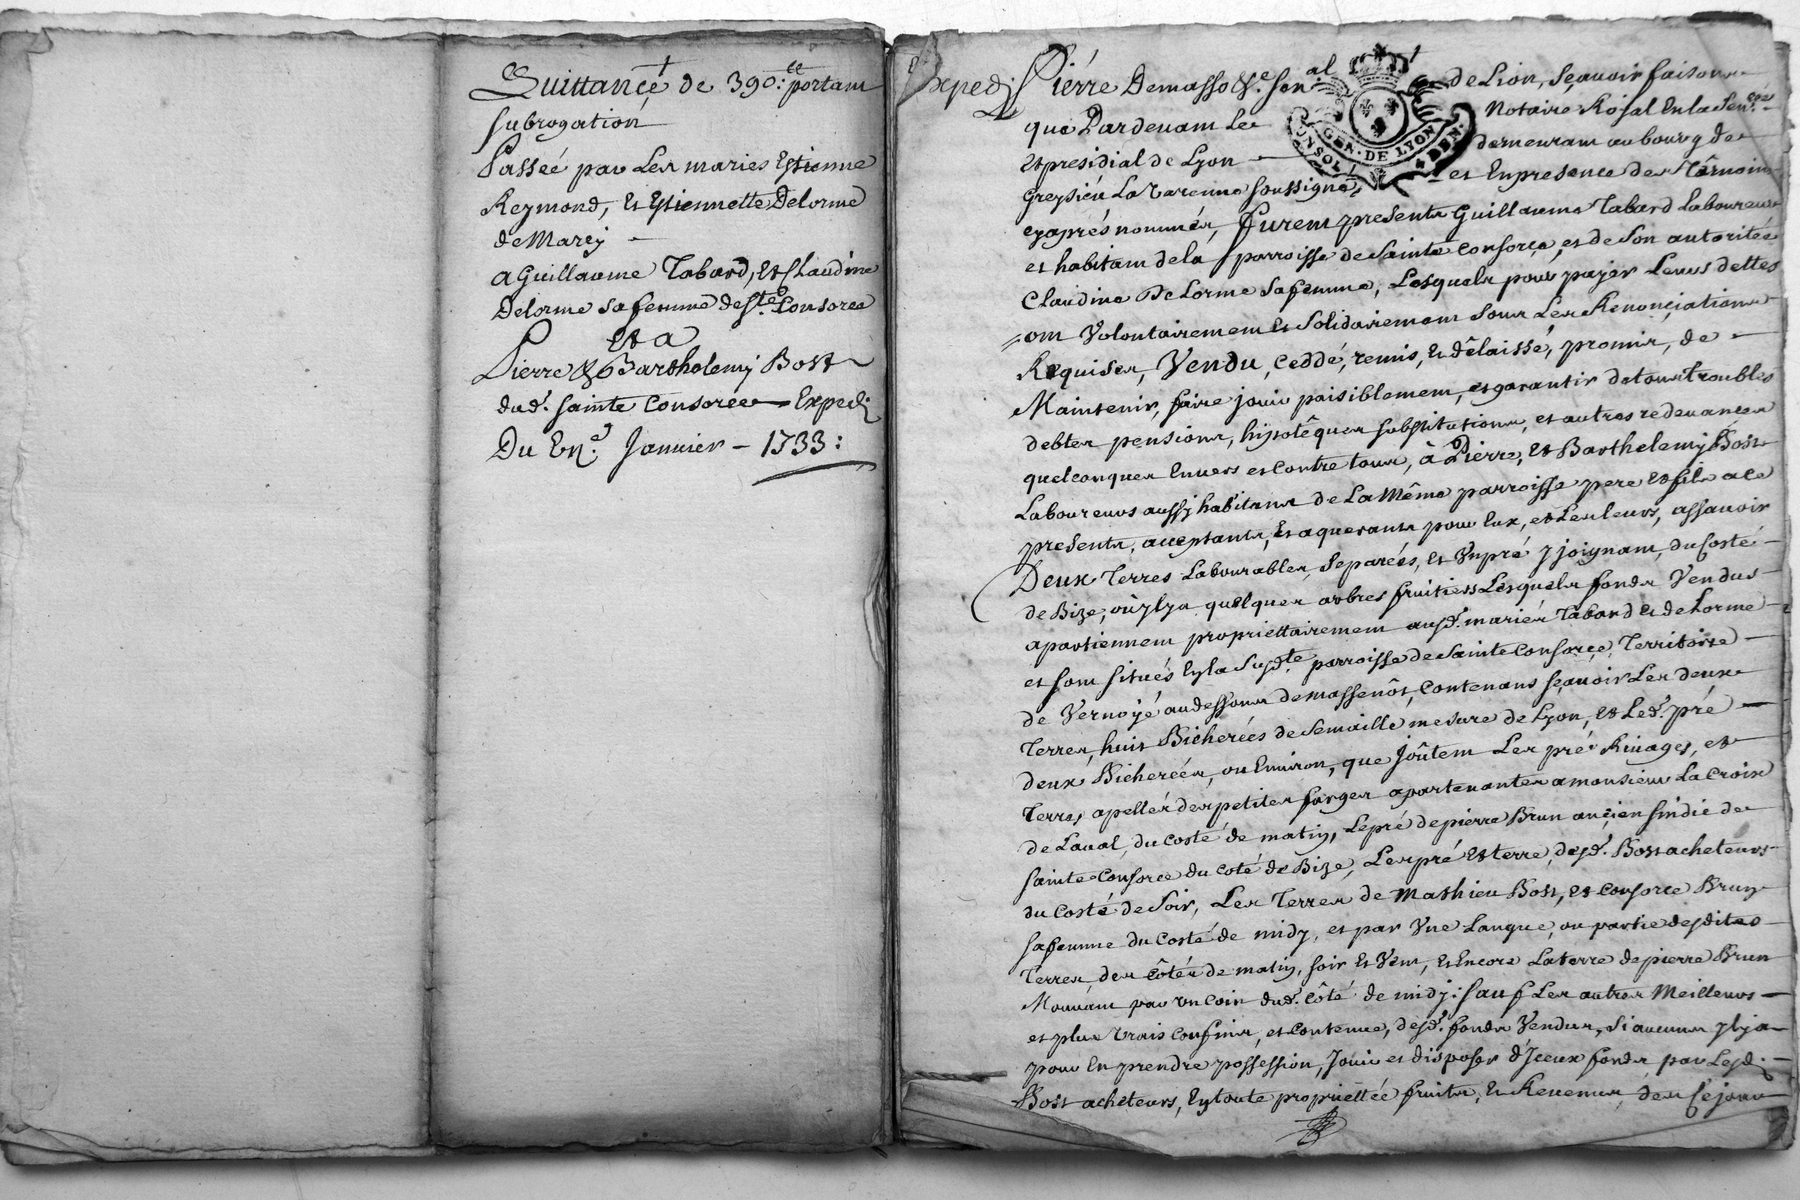 Quittancé de 390:ᵗᵗ portant
subrogation
Passée par Les mariés Estienne
Reymond, Et Estiennette Delorme
de Marcy
a Guillaume Tabard, Et Claudine
Delorme sa femme de Sᵗᵉ. Consorce
Et a
Pierre & Barthelemy Bost
dud. sainte Consorce Expedi
Du Janvier - 1733:
Expedi Pierre Demasso de Lion, sçavoir faisons
que Pardevant Le Notaire Royal En la Senˢᵉᵉ
et presidial de Lyon demeurant au bourg de
Greysieu La Varenne soussigné, et En presence des Têmoins
cy aprés nommés, furent presents Guillaume Tabard Laboureur
et habitant de la parroisse de Sainte Consorce, et de Son autorité
Claudine De Lorme Sa femme, Lesquels pour payer Leurs dettes
ont Volontairement Et Solidairement Sous Les Renonciations
Requises, Vendu, Ceddé, remis, Et délaissé, promis, de
Maintenir, faire jouir paisiblement, et garantir de tous troubles
debtes pensions, hipotêques substitutions, et autres redevances
quelconques Envers et Contre tous, à Pierre, Et Barthelemy Bost
Laboureurs aussy habitans de La Même parroisse pere Et fils a ce
presents, acceptants, Et aquerants pour Eux, et Les leurs, assavoir
Deux Terres Labourables, Separées, et Un pré y joignant, du Costé
de Bize, où yl y a quelques arbres fruitiers Lesquels fonds Vendus
apartiennent propriettairement ausd. mariés Tabard Et de Lorme
et sont situés En la Susdᵗᵉ parroisse de Sainte Consorce, Territoire
de Vernoyé au dessous de massenôt, Contenans sçavoir Les deux
Terres, huit Bicherées de Semaille mesure de Lyon, et Led. pré
deux Bicherées, ou Environ, que Joûtent Les pré Rivages, et
Terres, apellés des petites forges apartenantes a monsieur La Croix
de Laval, du Costé de matin, Le pré de pierre Brun ancien sindic de
Sainte Consorce du Coté de Bize, Les pré Et terre, desd. Bost acheteurs
du Costé de Soir, Les Terres de Mathieu Bost, et Consorce Brun
sa femme du Costé de midy, et par Une Langue, ou partie desdites
Terres, des Côtés de matin, soir Et Vent, Et Encore La terre de pierre Brun
Mouvant par Un Coin dud. Côté de midy: Sauf Les autres Meilleurs
et plus Vrais Confins, et Contenue, desd. fonds Vendus, Si aucuns yl y a
pour En prendre possession, Jouir et disposer d'Jceux fonds par Lesd.
Bost acheteurs, En toute propriettée fruits, Et Revenus, des Cejour
GEN. DE LYON